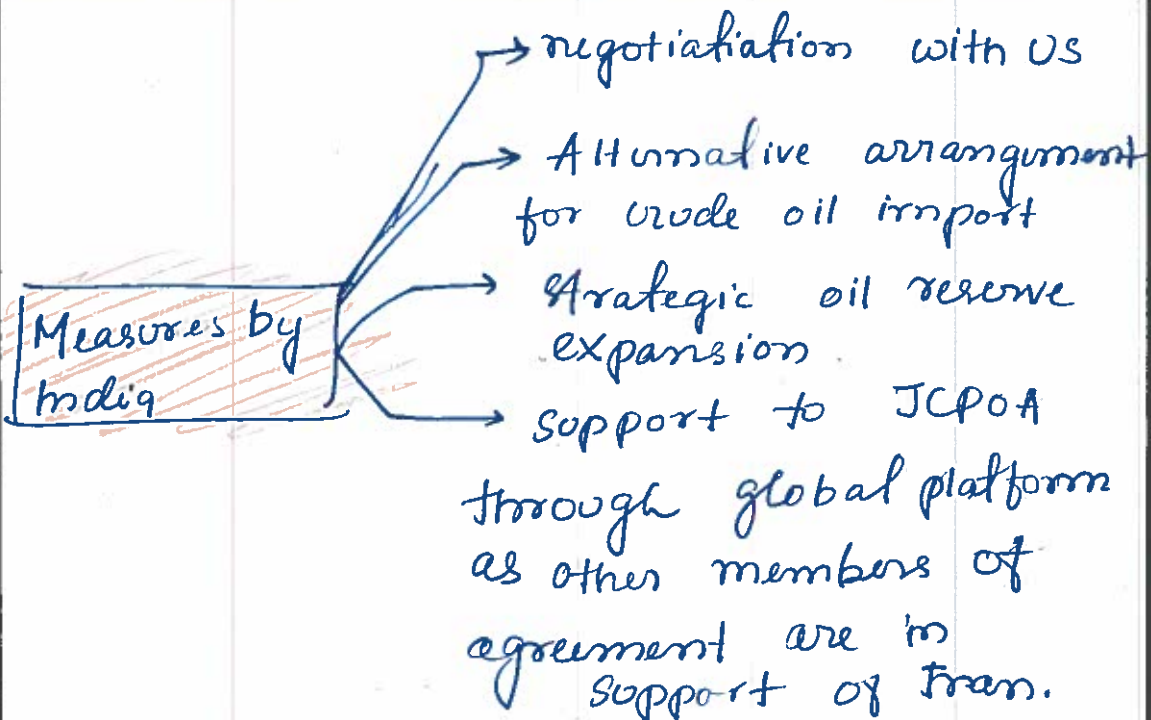 negotiatiation with US
Alternative arrangement
for crude oil import
Strategic oil reserve
expansion
Measures by
India
support to JCPOA
through global platform
as other members of
agreement are in
support of Iran.